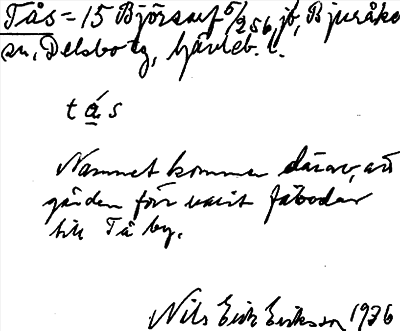 Tås = 15 Björsarf 5/256, jb, Bjuråko
sn, Delsbo tg, Gävleb. l.
tá̲s
Namnet kommer därav, att
gården förr varit fäbodar
till Tå by.
Nils Erik Eriksson 1936